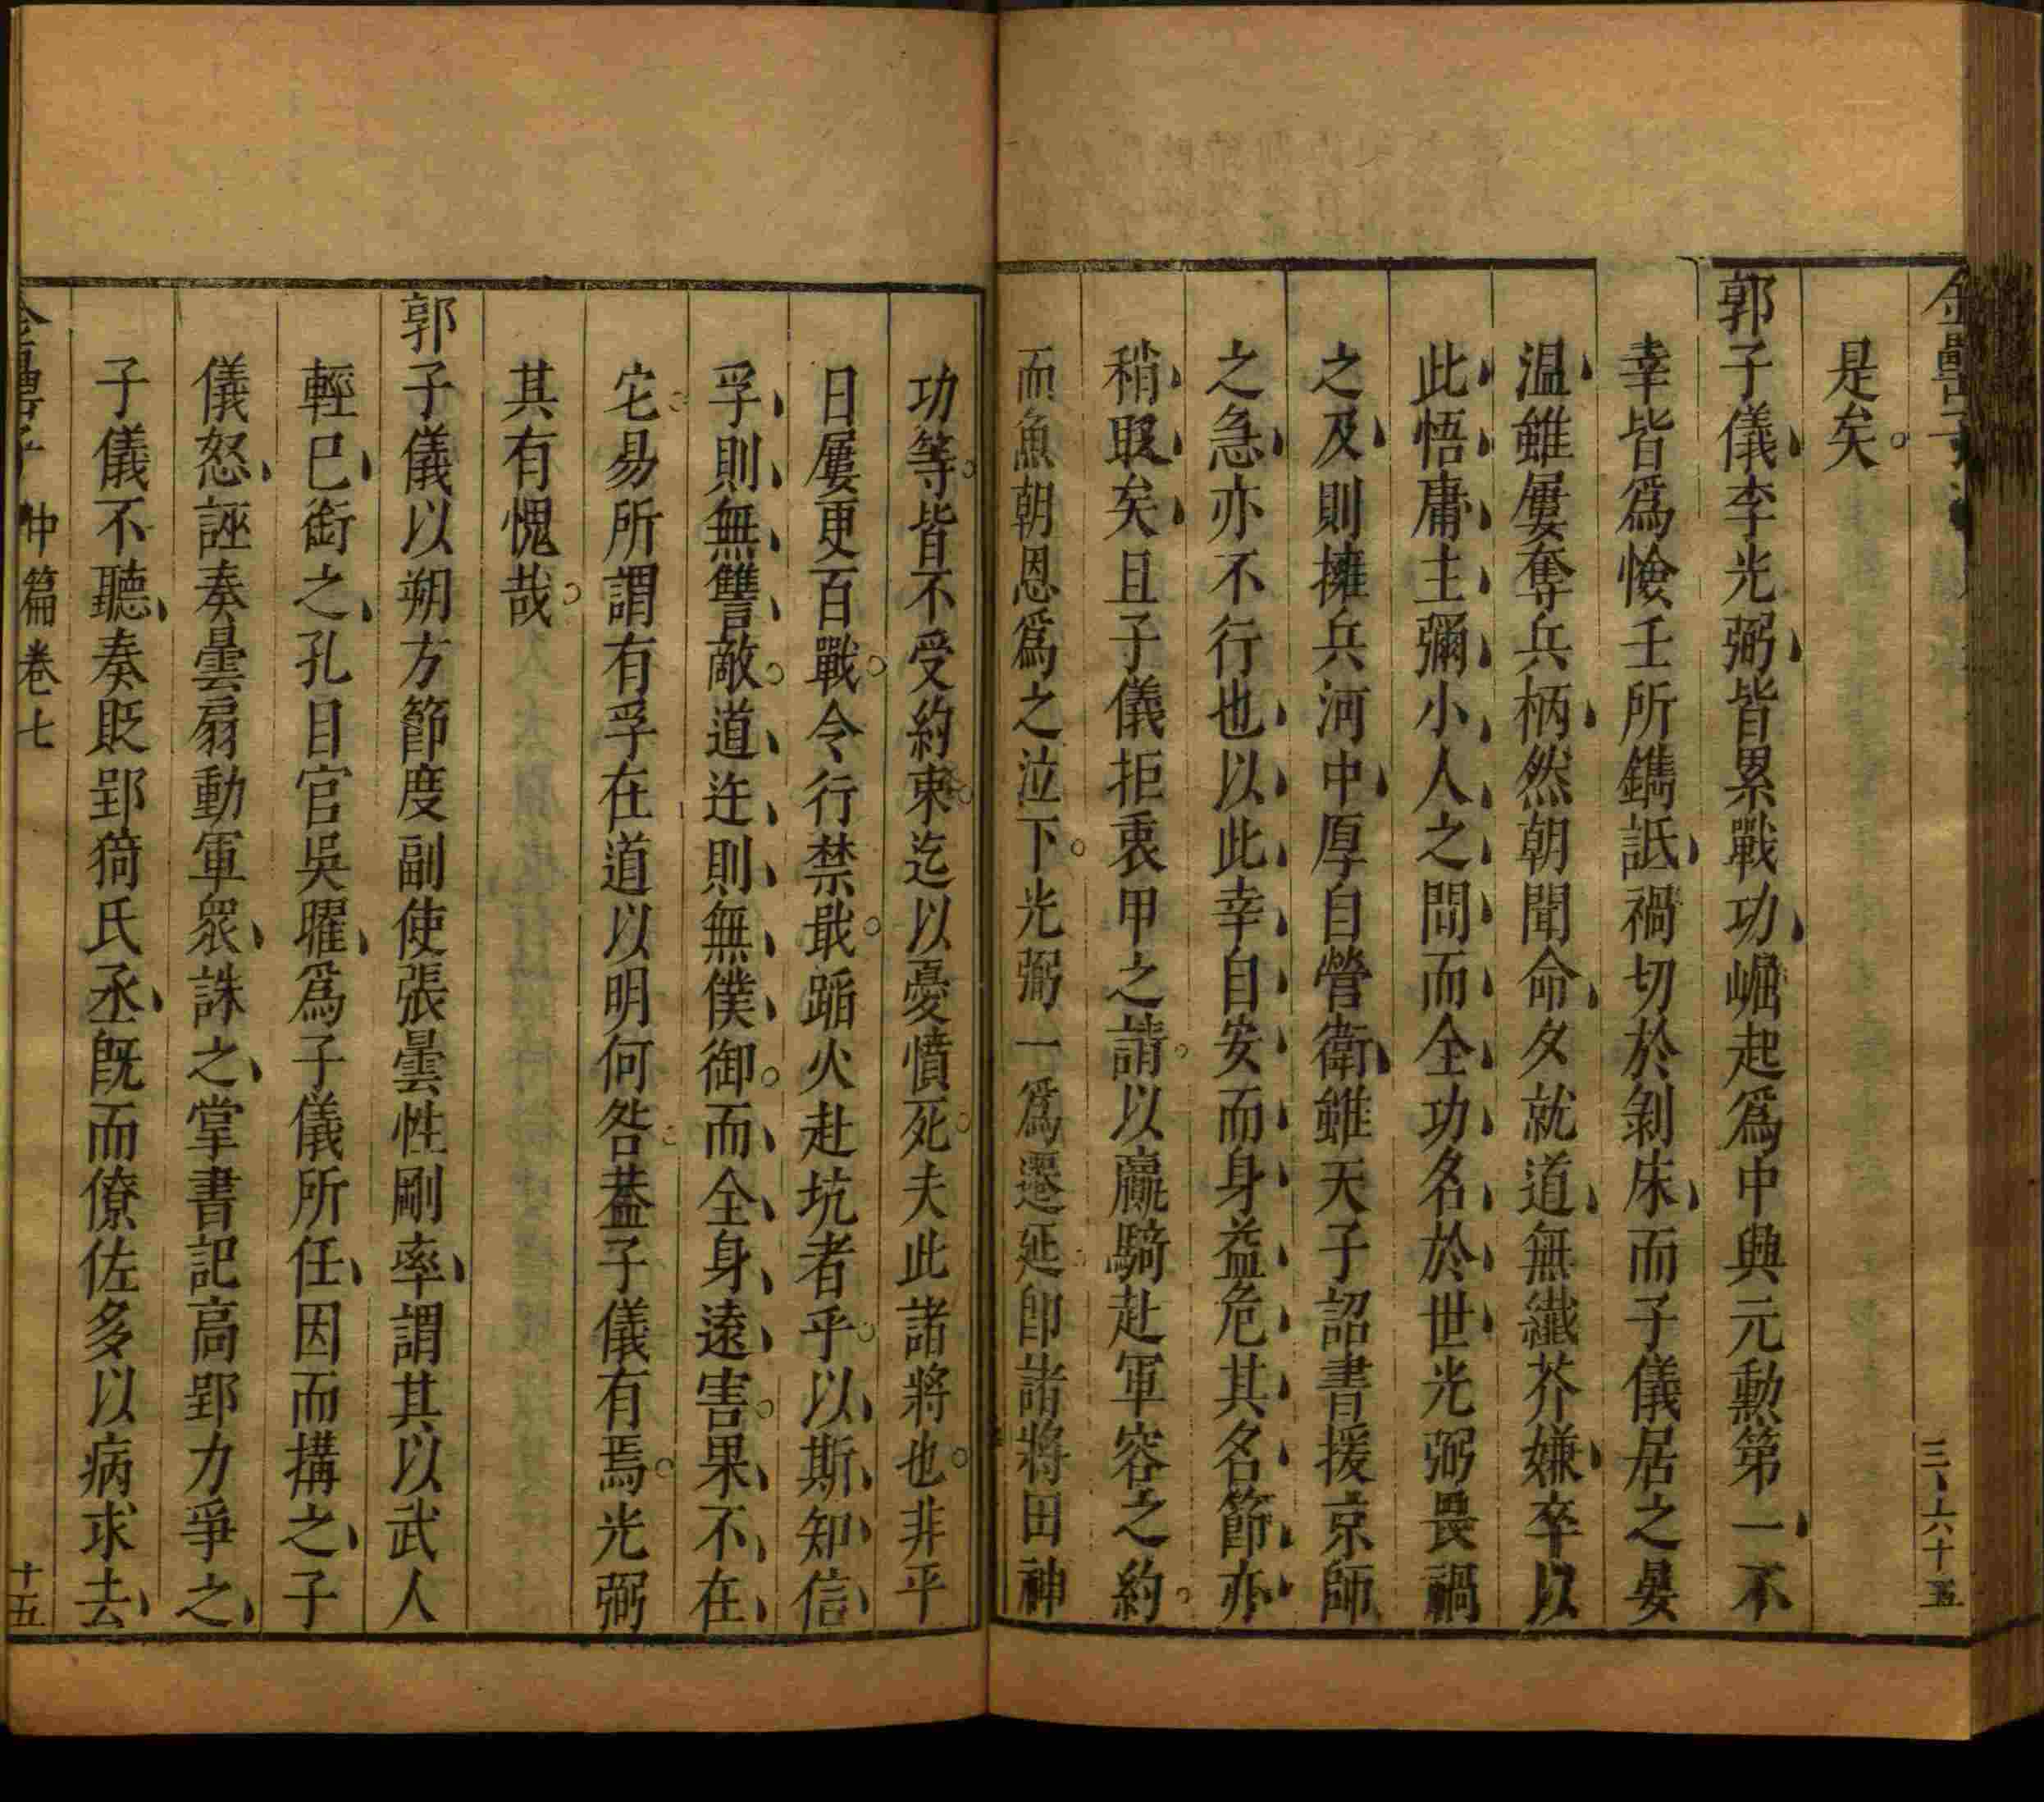 是矣
郭子儀李光弼皆累戰功崛起爲中興元勳第一不
幸皆爲憸壬所鐫詆禍切於剝床而子儀居之晏
温雖屢奪兵柄然朝聞命夕就道無纖芥嫌卒以
此悟庸主彌小人之間而全功名於世光弼畏禍
之及則擁兵河中厚自營衛雖天子詔書援京師
之急亦不行也以此幸自安而身益危其名節亦
稍貶矣且子儀拒衷甲之請以羸騎赴軍容之約
而魚朝恩爲之泣下光弼一爲遷延卽諸將田神
功等皆不受約束迄以憂憤死夫此諸將也非平
日屢更百戰令行禁戢蹈火赴坑者乎以斯知信
孚則無讐敵道迕則無僕御而全身遠害果不在
宅易所謂有孚在道以明何咎葢子儀有焉光弼
其有愧哉
郭子儀以朔方節度副使張曇性剛率謂其以武人
輕已銜之孔目官吳曜爲子儀所任因而搆之子
儀怒誣奏曇扇動軍衆誅之掌書記高郢力爭之
子儀不聽奏貶郢猗氏丞旣而僚佐多以病求去
中篇卷七
十五